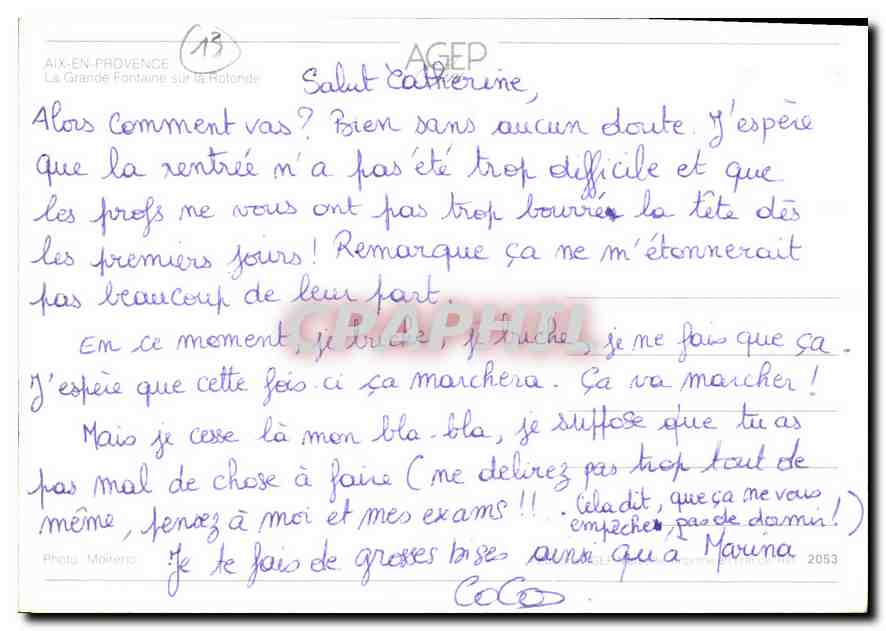 13
AGEP
AIX-EN-PROVENCE
La Grande Fontaine sur la Rotonde
Salut Catherine,
Alors comment vas? Bien sans aucun doute. J'espère
que la rentrée n'a pas été trop difficile et que
les profs ne vous ont pas trop bourré la tête dès
les premiers jours! Remarque ça ne m'étonnerait
pas beaucoup de leur part.
CPAPHIL
En ce moment, je truche, je truche, je ne fais que ça.
J'espère que cette fois-ci ça marchera. Ça va marcher!
Mais je cesse là mon bla-bla, je suppose que tu as
pas mal de chose à faire (ne delirez pas trop tout de
même, pensez à moi et mes exams!!. Cela dit, que ça ne vous
empêche, pas de dormir!)
Je te fais de grosses bises ainsi qu'à Marina
Photo: 2053
CoCo.